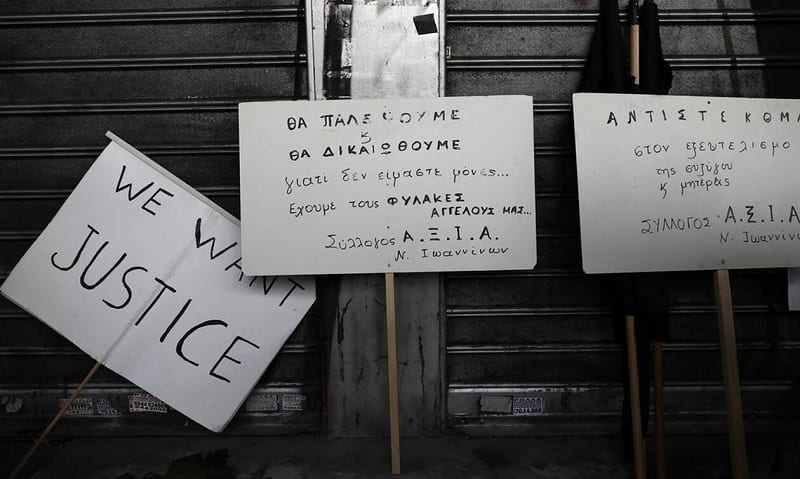 WE WANT
JUSTICE
ΘΑ ΠΑΛΕΨΟΥΜΕ
&
ΘΑ ΔΙΚΑΙΩΘΟΥΜΕ
γιατί δεν είμαστε μόνες...
Έχουμε τους ΦΥΛΑΚΕΣ
ΑΓΓΕΛΟΥΣ ΜΑΣ...
Σύλλογος Α.Ξ.Ι.Α.
Ν. Ιωαννίνων
ΑΝΤΙΣΤΕΚΟΜΑ
στον εξευτελισμό
της συζύγου
& μητέρας
ΣΥΛΛΟΓΟΣ Α.Ξ.Ι.Α
Ν. Ιωαννίνω